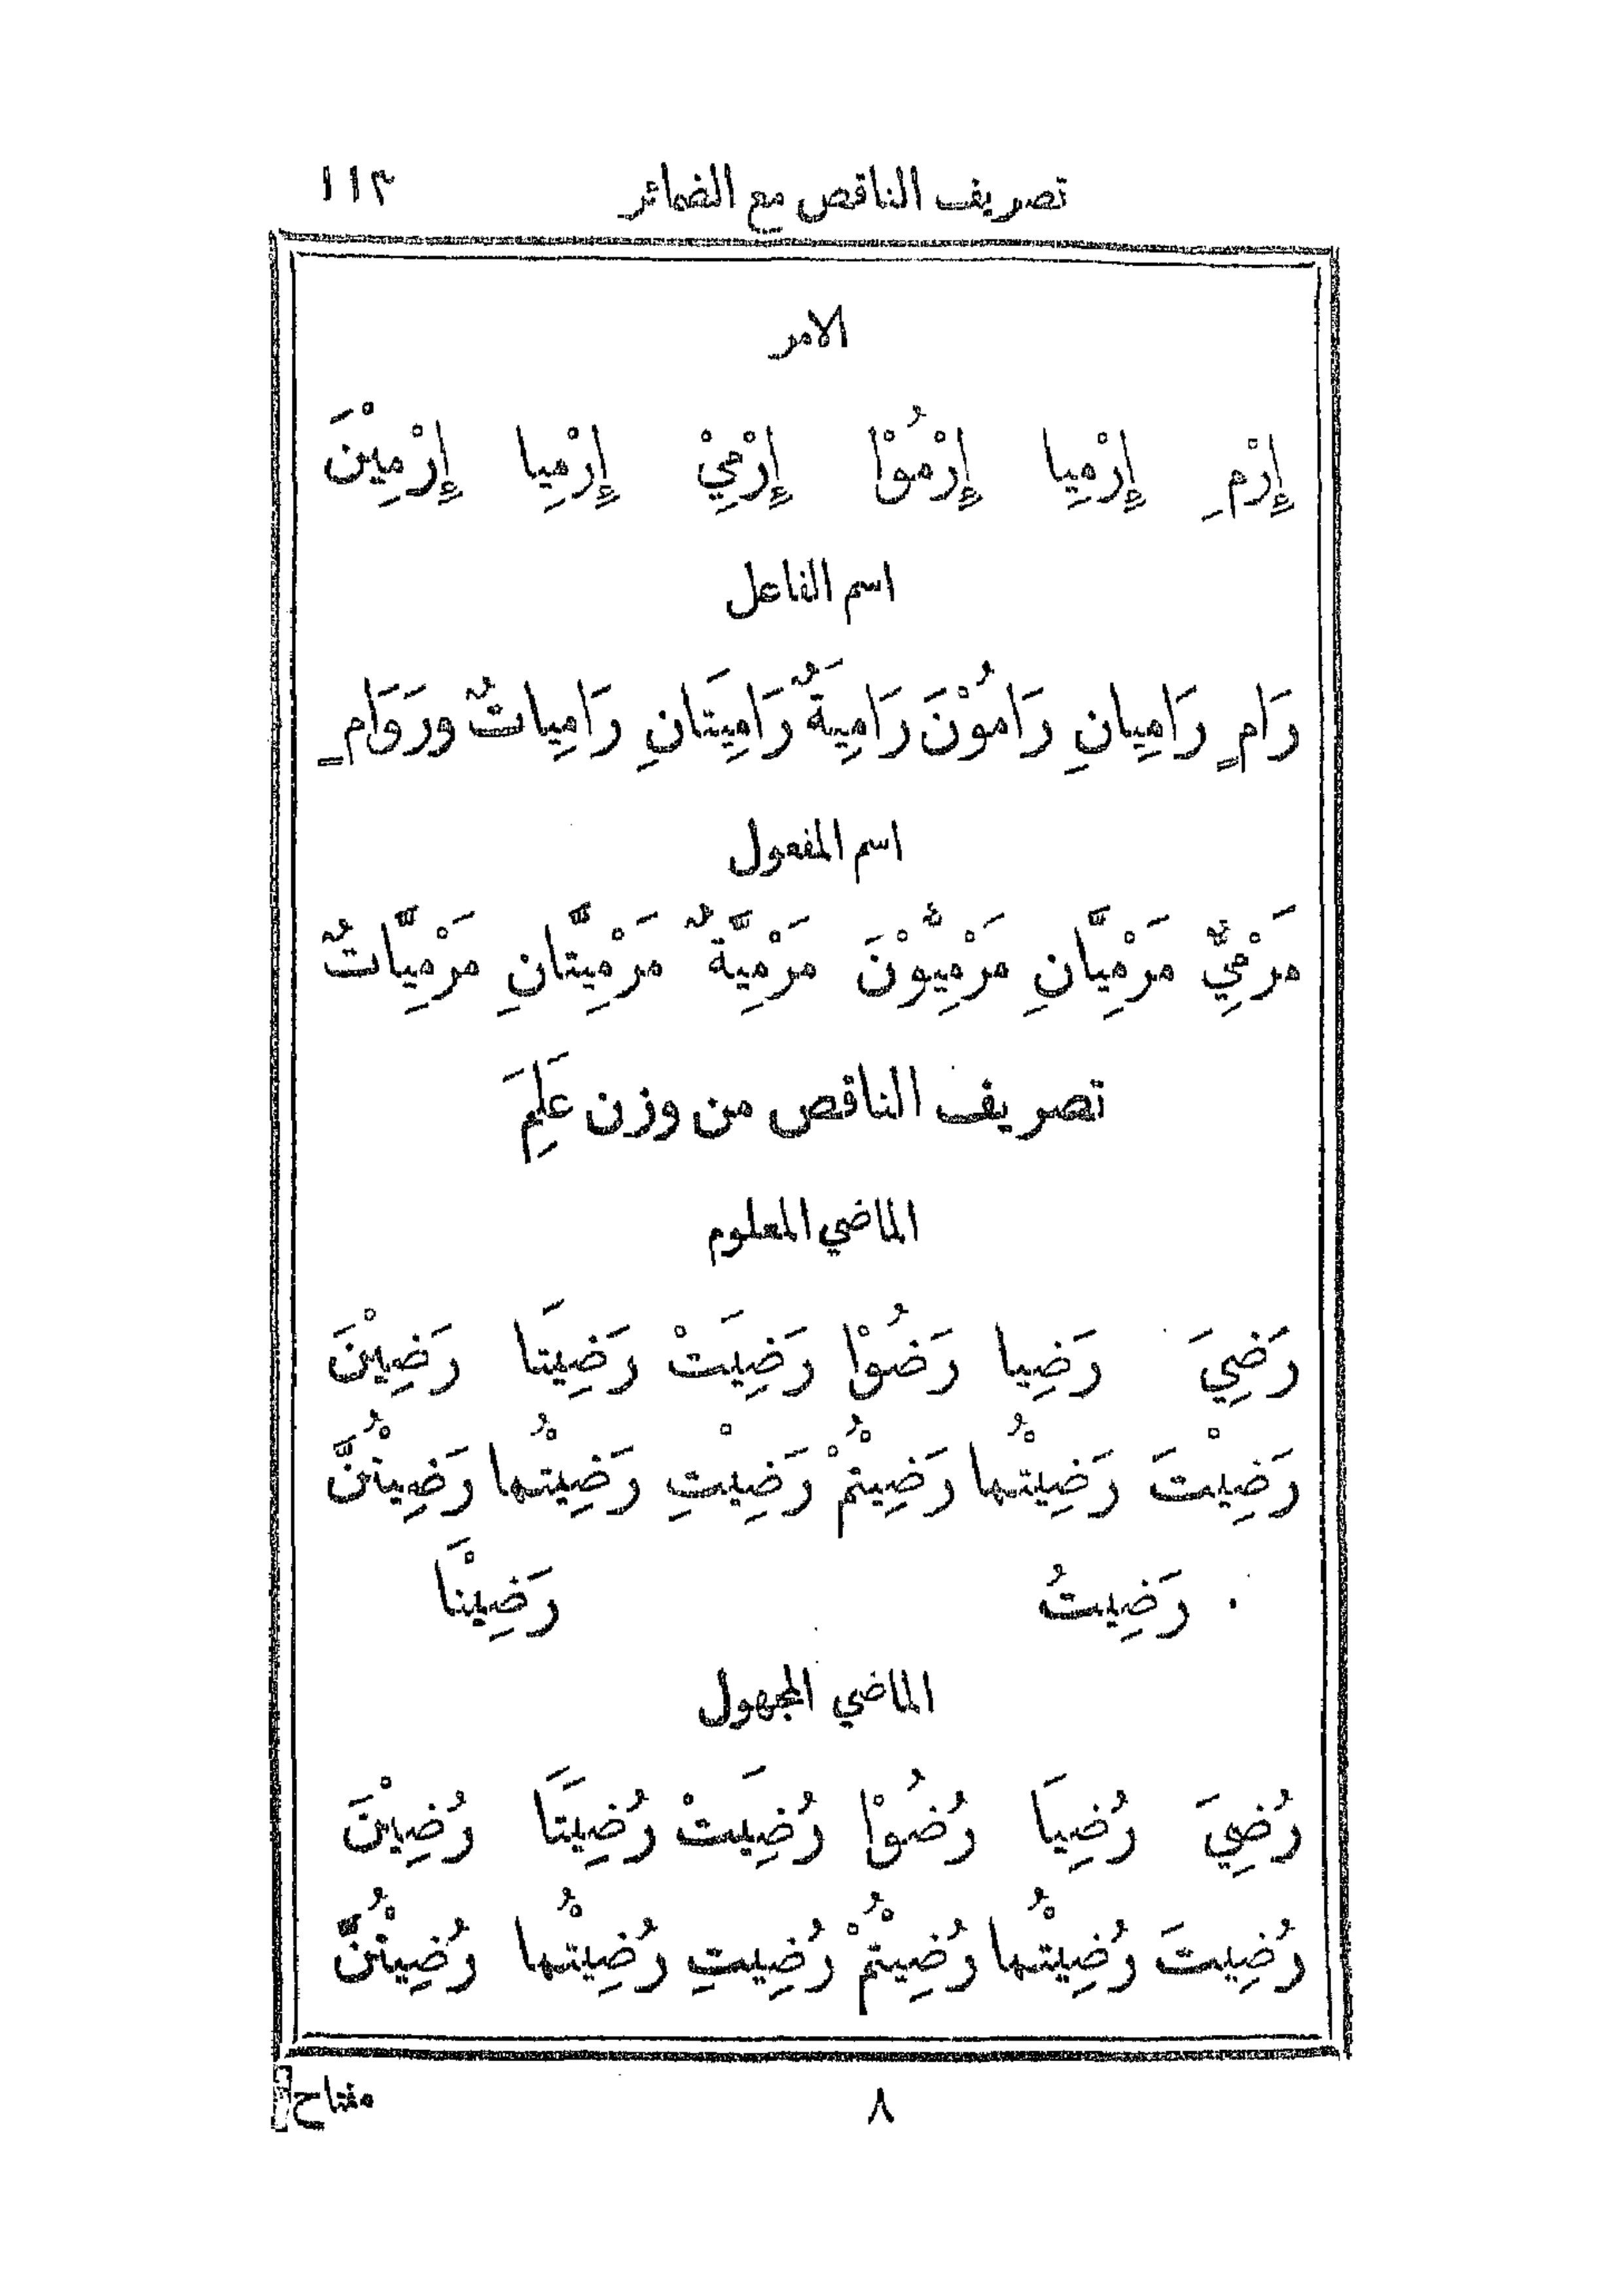 تصريف الناقص مع الضمائر ١١٣
الامر
إِرْمِ إِرْمِيا إِرْمُوْا إِرْمِيْ إِرْمِيا إِرْمِيْنَ
اسم الفاعل
رَامٍ رَامِيانِ رَامُوْنَ رَامِيَةٌ رَامِيَتَانِ رَامِياتٌ ورَوَامٍ
اسم المفعول
مَرْمِيٌّ مَرْمِيَّانِ مَرْمِيُّوْنَ مَرْمِيَّةٌ مَرْمِيَّتانِ مَرْمِيَّاتٌ
تصريف الناقص من وزن عَلِمَ
الماضي المعلوم
رَضِيَ رَضِيا رَضُوْا رَضِيَتْ رَضِيَتا رَضِيْنَ
رَضِيْتَ رَضِيْتُما رَضِيْتُمْ رَضِيْتِ رَضِيْتُما رَضِيْتُنَّ
رَضِيتُ رَضِيْنَا
الماضي المجهول
رُضِيَ رُضِيَا رُضُوْا رُضِيَتْ رُضِيَتَا رُضِيْنَ
رُضِيتَ رُضِيْتُما رُضِيْتُمْ رُضِيتِ رُضِيْتُما رُضِيْتُنَّ
٨ مفتاح